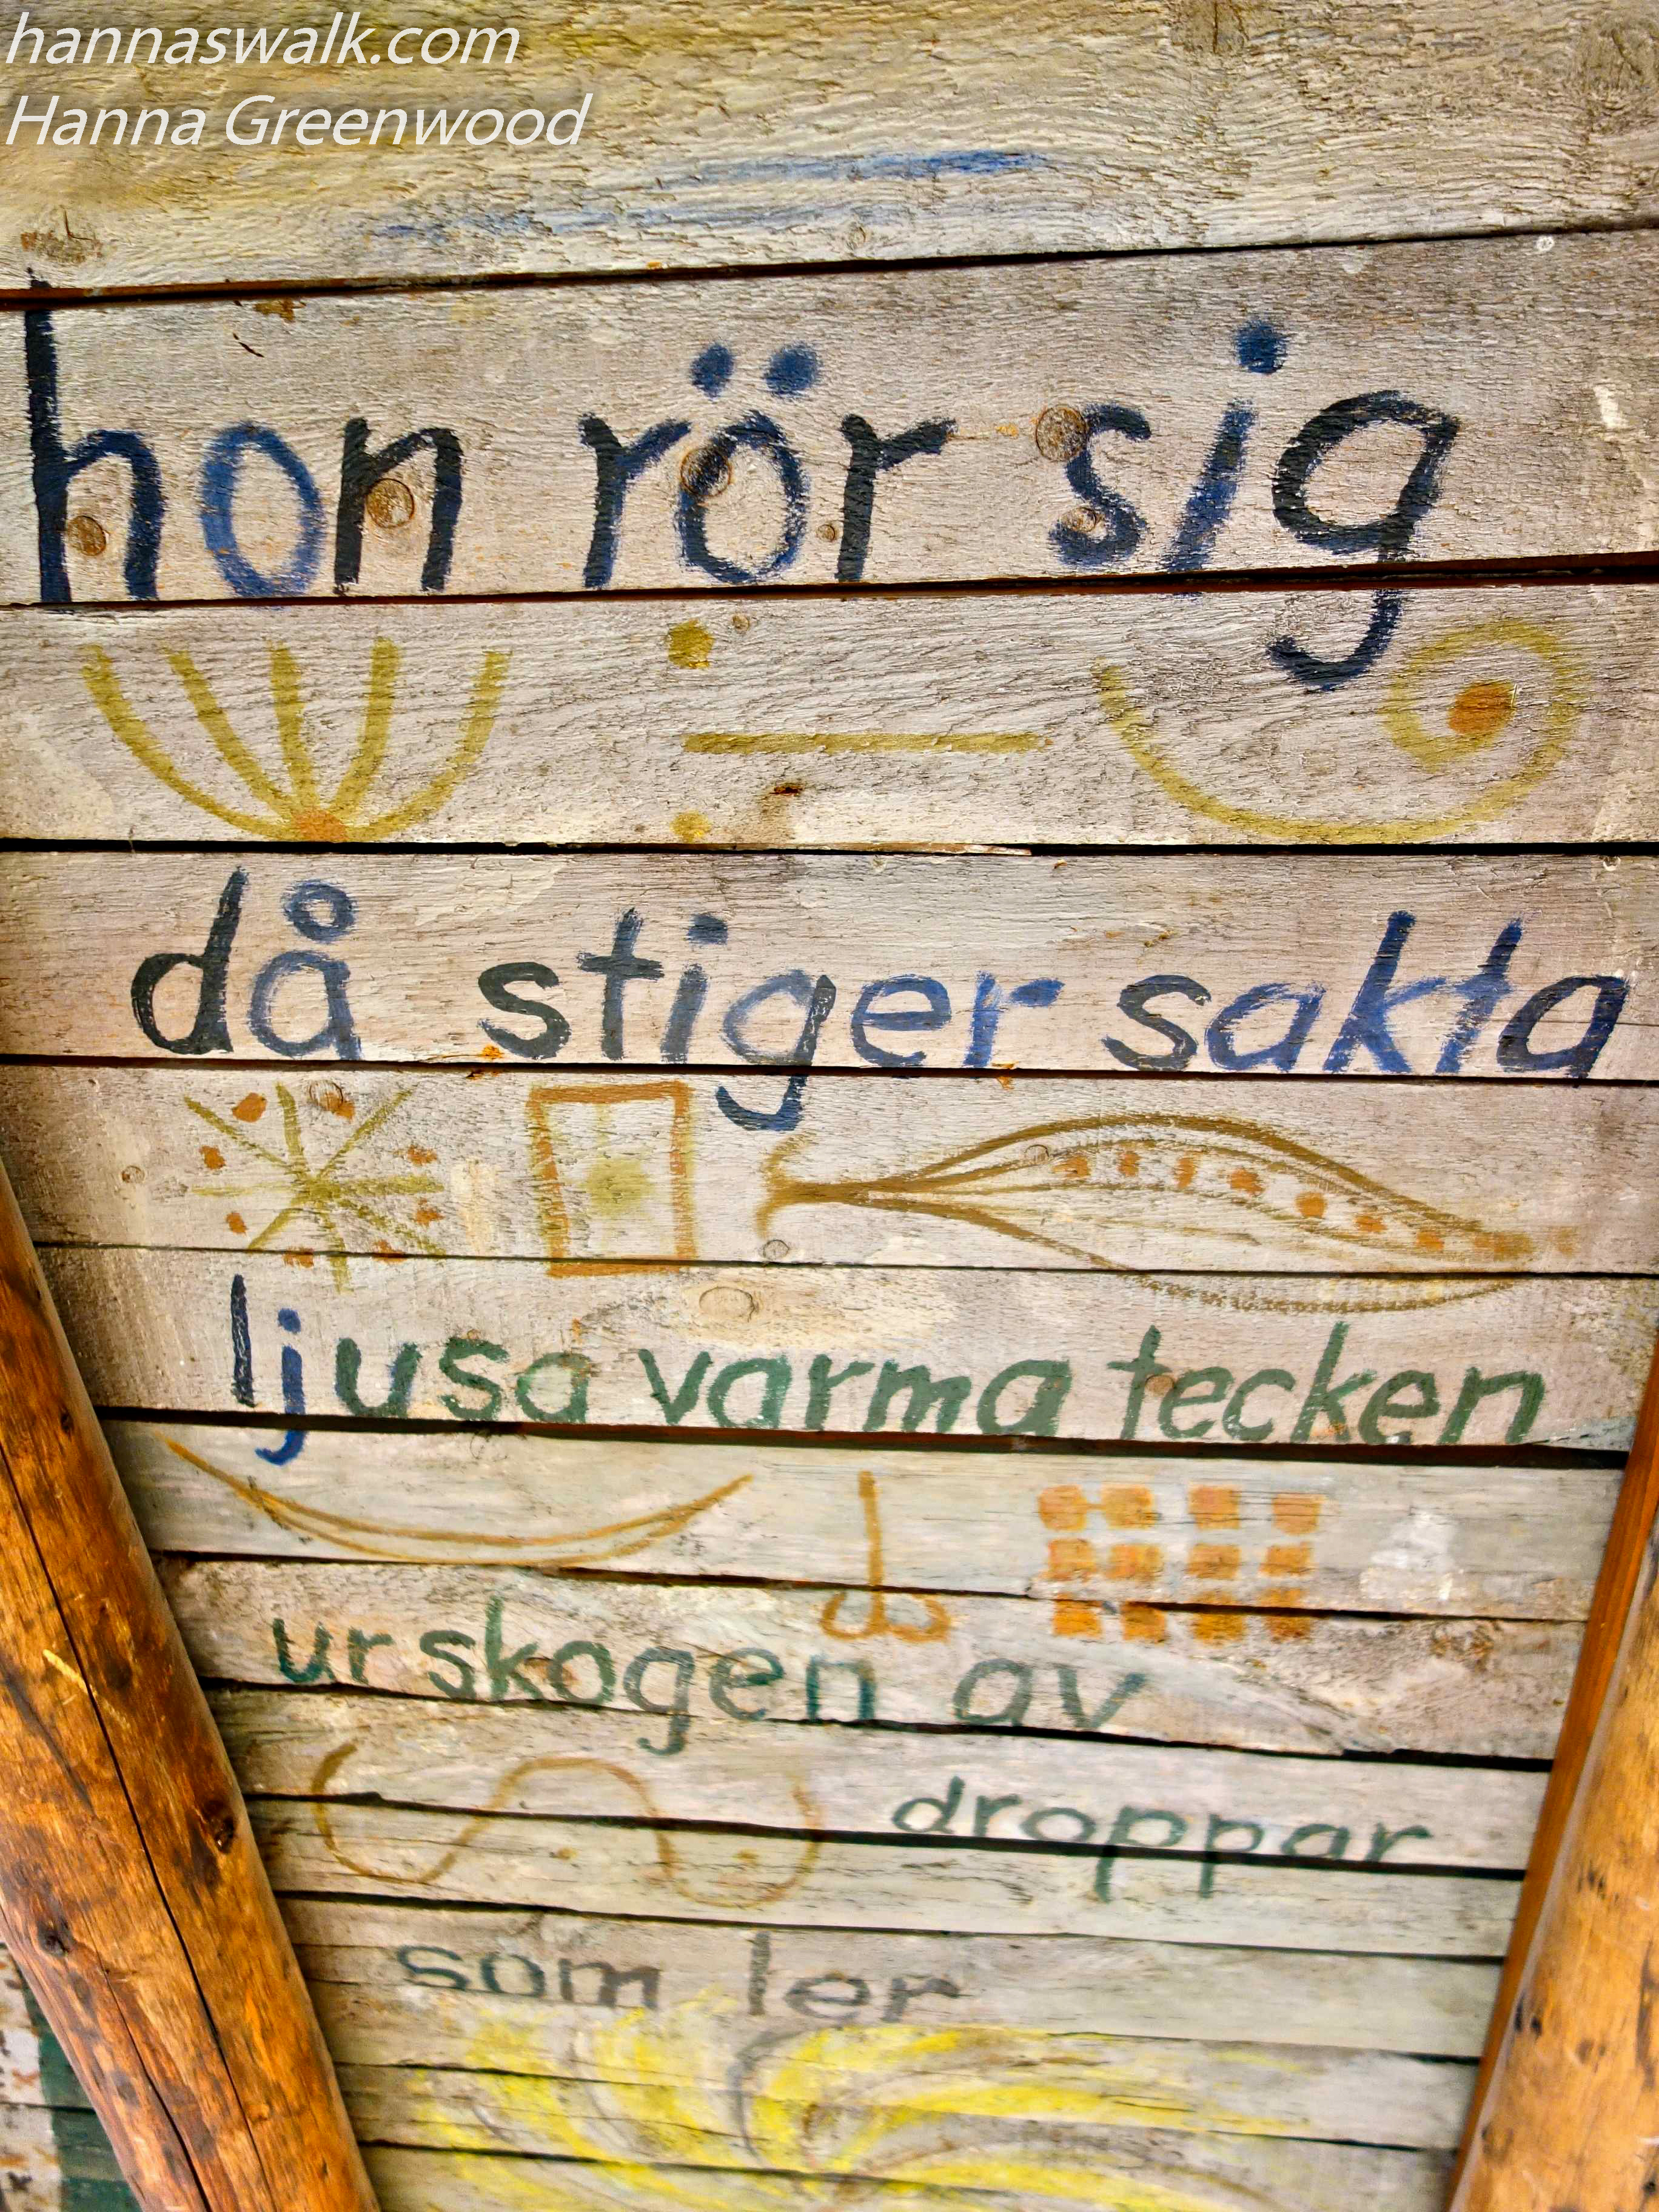 hannaswalk.com
Hanna Greenwood
hon rör sig
då stiger sakta
ljusa varma tecken
ur skogen av
droppar
som ler